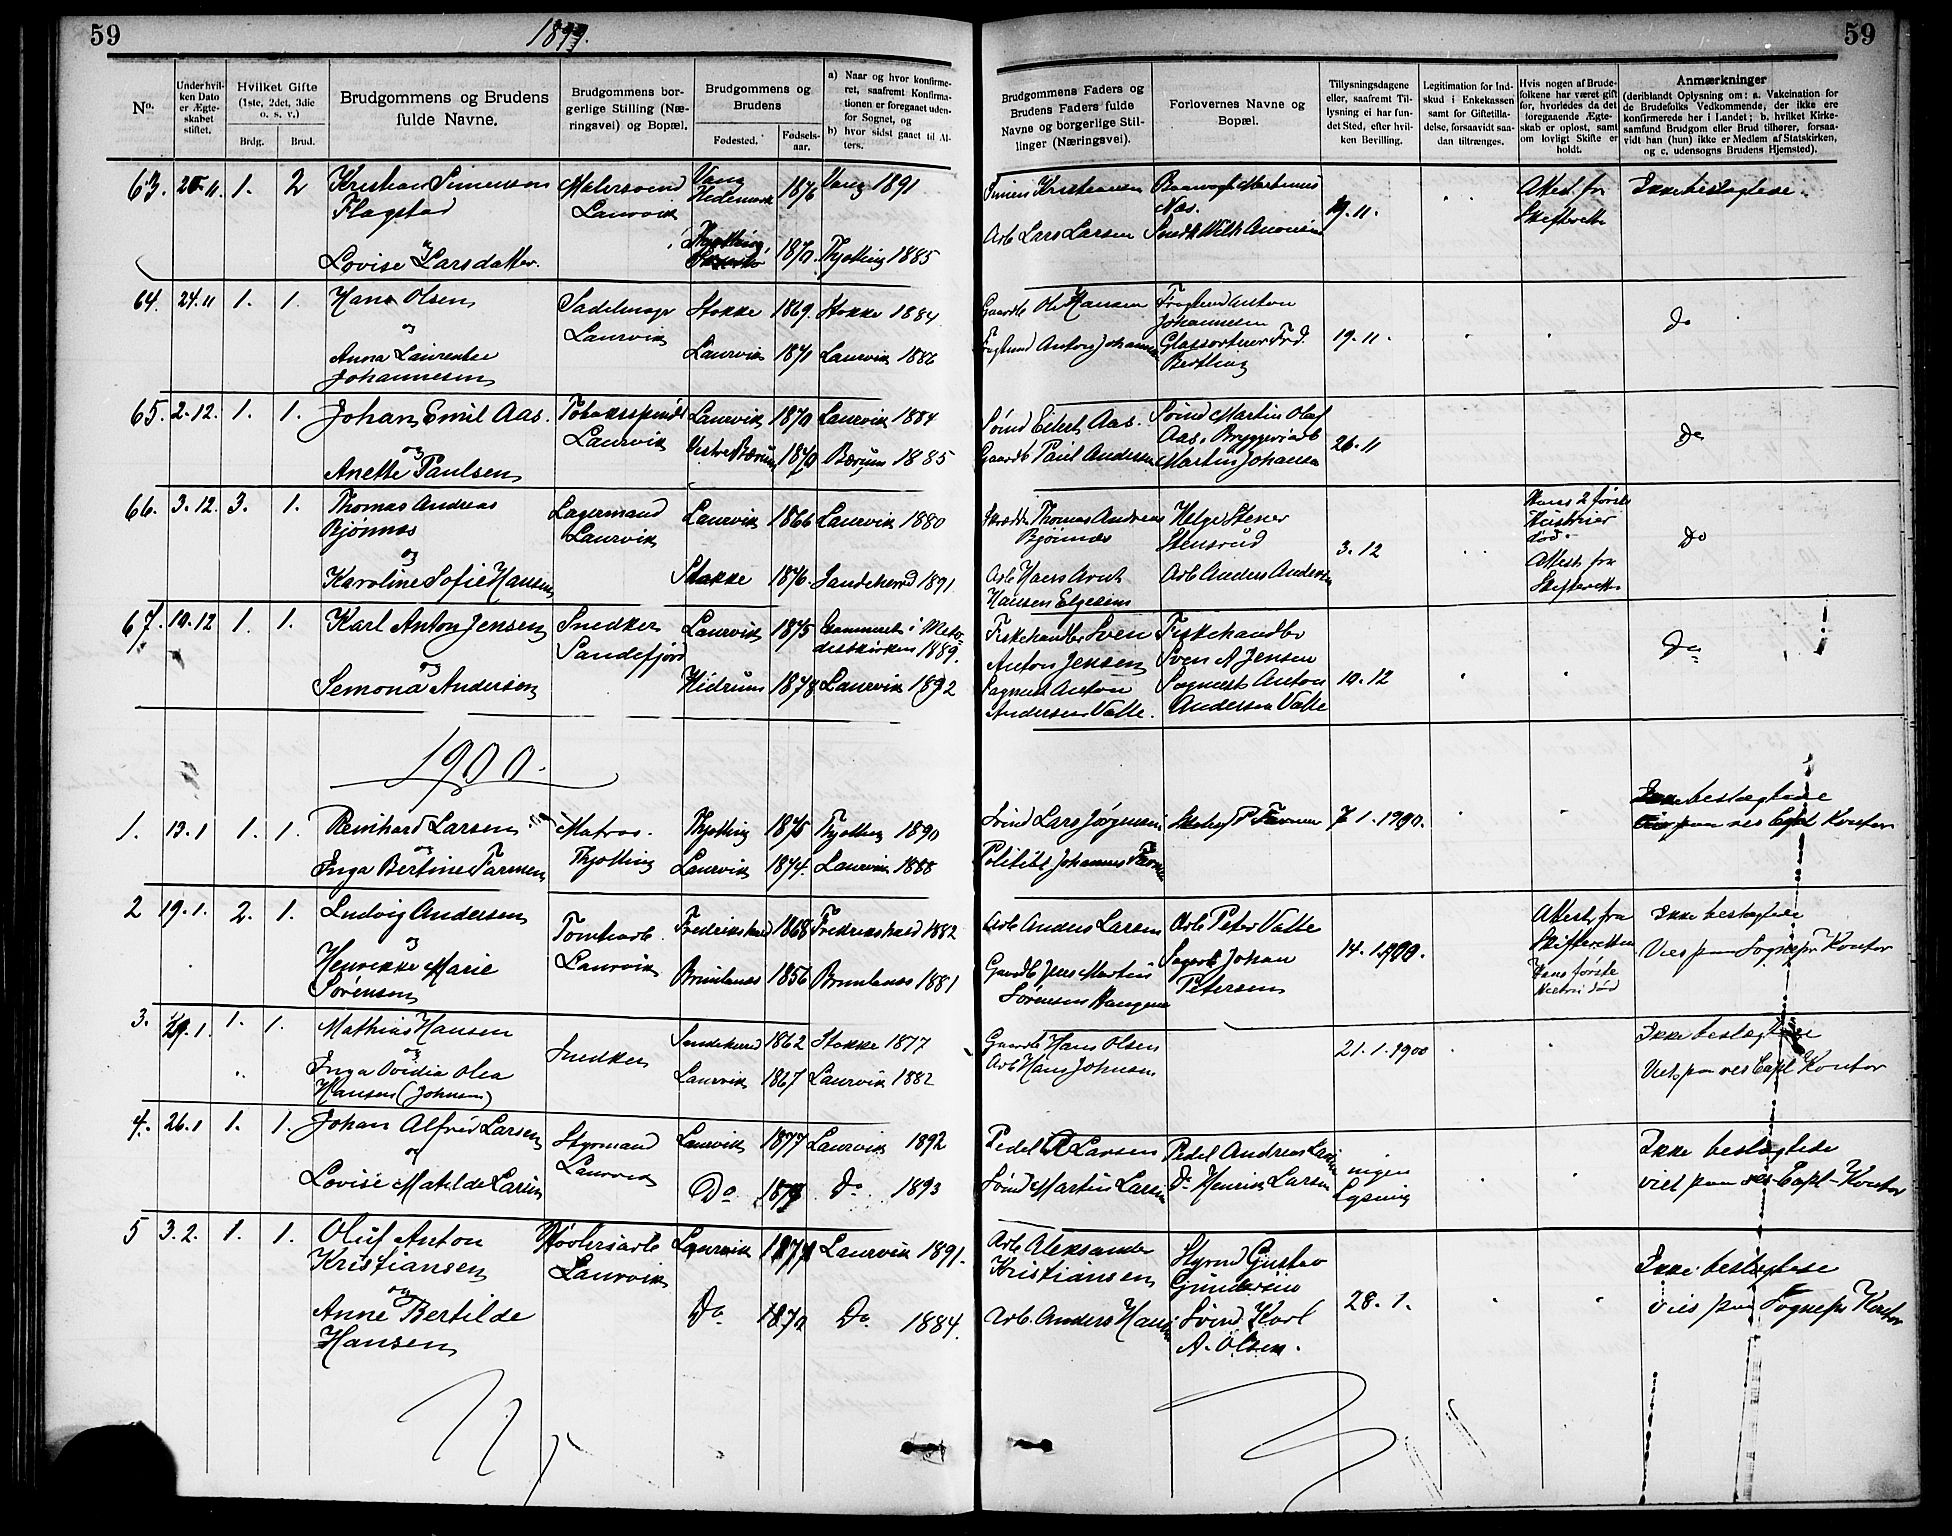 59
1899.
59
No.
Underhvil-
ken Dato
er Ægte-
skabet
stiftet.
Hvilket Gifte
(1ste, 2det, 3die
o. s. v.)
Brdg.
Brud.
Brudgommens og Brudens
fulde Navne.
Brudgommens bor-
gerlige Stilling (Næ-
ringsvei) og Bopæl.
Brudgommens og
Brudens
Fødested.
Fødsels-
aar.
a) Naar og hvor konfirme-
ret, saafremt Konfirma-
tionen er foregaaet uden-
for Sognet, og
b) hvor sidst gaaet til Al-
ters.
Brudgommens Faders og
Brudens Faders fulde
Navne og borgerlige Stil-
linger (Næringsvei).
Forlovernes Navne og
Bopæl.
Tillysningsdagene
eller, saafremt Til-
lysning ei har fun-
det Sted, efter hvil-
ken Bevilling.
Legitimation for Ind-
skud i Enkekassen
samt for Giftetilla-
delse, forsaavidt saa-
dan tiltrænges.
Hvis nogen af Brude-
folkene har været gift
før, hvorledes da det
foregaaende Ægte-
skab er opløst, samt
om lovligt Skifte er
holdt.
Anmærkninger
(deriblandt Oplysning om: a. Vakcination for
de Brudefolks Vedkommende, der ikke ere
konfirmerede her i Landet; b. hvilket Kirke-
samfund Brudgom eller Brud tilhører, forsaa-
vidt han (hun) ikke er Medlem af Statskirken,
og c. udensogns Brudens Hjemsted).
63. 25.11. 1. 2 Kristian Simenson Malersvend Vang 1876 Vang 1891
Flagstad Laurvik Hedemark
og
Lovise Larsdatter. Thjølling 1870. Thjølling 1885
Simen Kristiansen Martinus
Næs. 19.11. Attest fra Ikke beslægtede.
Arb Lars Larsen Skifteretten
64. 24.11 1. 1. Hans Olsen Sadelmager Stokke 1869. Stokke 1884
og Laurvik
Anna Laurentse Laurvik 1871 Laurvik 1886
Johannesen
Gaardb Ole Hansen Anton
Johannesen 19.11. do
Anton Johannesen Glassorterer Frd.
Bertling
65. 2.12. 1. 1. Johan Emil Aas. Laurvik 1870 Laurvik 1884
og Laurvik
Anette Paulsen Vestre Bærum 1870 Bærum 1885
Eilert Aas. Martin Olaf
Aas. Bryggeriarb 26.11 do
Gaardb Paul Andersen Martin Johansen
66. 3.12. 3. 1. Thomas Andreas Lagermand Laurvik 1866 Laurvik 1880
Bjønnes Laurvik
og
Karoline Sofie Hansen Stokke 1876. Sandeherred 1891
Thomas Andreas Helge Stener Hans 2 første
Bjønnes Stensrud Hustruer
død. 3.12 Do
Arb Hans Arnt Arb Anders Andersen Attest fra
Hansen Elgesem Skifteretten
67. 10.12 1. 1. Karl Anton Jensen Snedker Laurvik 1875 i Meto-
og Sandefjord distkirken 1889.
Semona Andersen Hedrum 1878 Laurvik 1892
Fiskehandler Sven Fiskehandler
Anton Jensen Sven A Jensen Do
Anton Anton 10.12
Andersen Valle. Andersen Valle
1900.
1. 13.1 1. 1. Reinhard Larsen Matros. Thjølling 1875 Thjølling 1890
og Thjølling
Inga Bertine Farmen Laurvik 1874. Laurvik 1888
Lars Jørgensen P Farmen 7 1.1900. Ikke beslægtede
Viet paa res Capl Kontor
Johannes Farmen
2 19.1. 2. 1. Ludvig Andersen Tomtearb. Fredrikshald 1868 Fredrikshald 1882
og Laurvik
Henrikke Marie Brunlanes 1856 Brunlanes 1881
Sørensen
Arb Anders Larsen Arb Peter Valle Attest fra Ikke beslægtede
Skifteretten Viet paa Sognepr Kontor
Gaardb Jens Martin Johan 14.1.1900. Hans første
Sørensen Petersen Hustru død
3. 29.1. 1. 1. Mathias Hansen Snedker Sandeherred 1862 Stokke 1877
og
Inga Ovidia Olea Laurvik 1867 Laurvik 1882
Hansen (Johnsen)
Gaardb Hans Olsen 21.1.1900 Ikke beslægtede
Arb Hans Johnsen Viet paa res Capl Kontor
4. 26.1 1. 1. Johan Alfred Larsen Styrmand Laurvik 1877 Laurvik 1892
og Laurvik
Lovise Matilde Larsen Do Do 1893
Pedel A Larsen Pedel Andreas Larsen ingen Ikke beslægtede
Martin Larsen Do Henrik Larsen Lysning viet paa res Capl-Kontor
5 3.2. 1. 1. Oluf Anton Høvleriarb Laurvik Laurvik 1891.
Kristiansen Laurvik
og
Anne Bertilde Do 1870 Do 1884.
Hansen
Arb Aleksander Styrmd Gustav
Kristiansen Gundersen Ikke beslægtede
Arb. Anders Hansen Karl 28.1. viet paa Sognepr Kontor
A. Olsen.